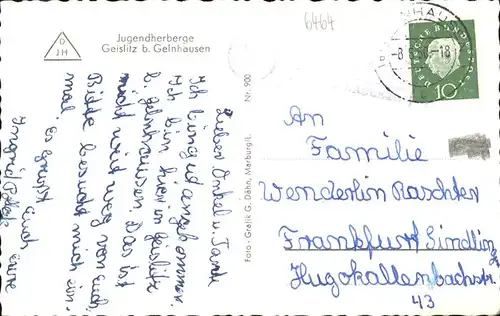 6464
DJH
Jugendherberge
Geislitz b. Gelnhausen
Nr. 900
Foto-Grafik G. Dähn, Marburg/L.
Lieber Onkel u. Tante
Ich bin gut angekommen.
Ich bin hier in Geislitz
b. Gelnhausen. Das ist
nicht weit weg von euch.
Bitte besucht mich ein-
mal. Es grüsst euch eure
Ingrid
GELNHAUSEN
-8
-18
DEUTSCHE BUNDESPOST
10
An
Familie
Wendelin Raschter
Frankfurt Sindling
Hugokallenbachstr.
43